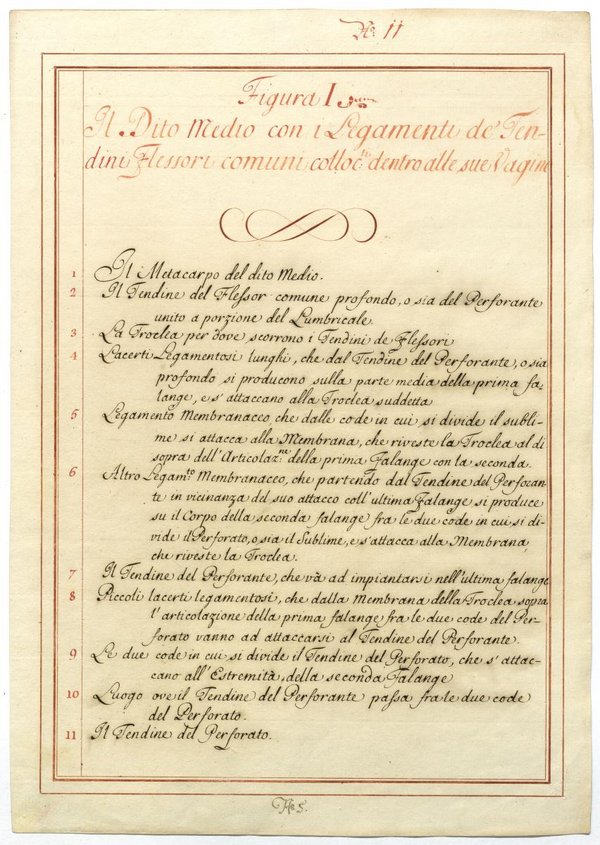 No. 11
Figura I.
Il Dito Medio con i Legamenti de' Ten-
dini Flessori comuni colloc.ti dentro alle sue Vagine
1 Il Metacarpo del dito Medio.
2 Il Tendine del Flessor comune profondo, o sia del Perforante
unito a porzione del Lumbricale.
3 La Troclea per dove scorrono i Tendini de Flessori
4 Lacerti Legamentosi lunghi, che dal Tendine del Perforante, o sia
profondo si producono sulla parte media della prima fa-
lange, e s'attaccano alla Troclea suddetta
5 Legamento Membranaceo, che dalle code in cui si divide il subli-
me si attacca alla Membrana, che riveste la Troclea al di
sopra dell'Articolaz.ne della prima Falange con la seconda.
6 Altro Legam.to Membranaceo, che partendo dal Tendine del Perforan-
te in vicinanza del suo attacco coll'ultima Falange si produce
su il Corpo della seconda falange fra le due code in cui si di-
vide il Perforato, o sia il Sublime, e s'attacca alla Membrana,
che riveste la Troclea.
7 Il Tendine del Perforante, che và ad impiantarsi nell'ultima falange
8 Piccoli lacerti legamentosi, che dalla Membrana della Troclea sopra
l'articolazione della prima falange fra le due code del Per-
forato vanno ad attaccarsi al Tendine del Perforante.
9 Le due code in cui si divide il Tendine del Perforato, che s'attac-
cano all'Estremità, della seconda Falange
10 Luogo ove il Tendine del Perforante passa fra le due code
del Perforato.
11 Il Tendine del Perforato.
No. 5.